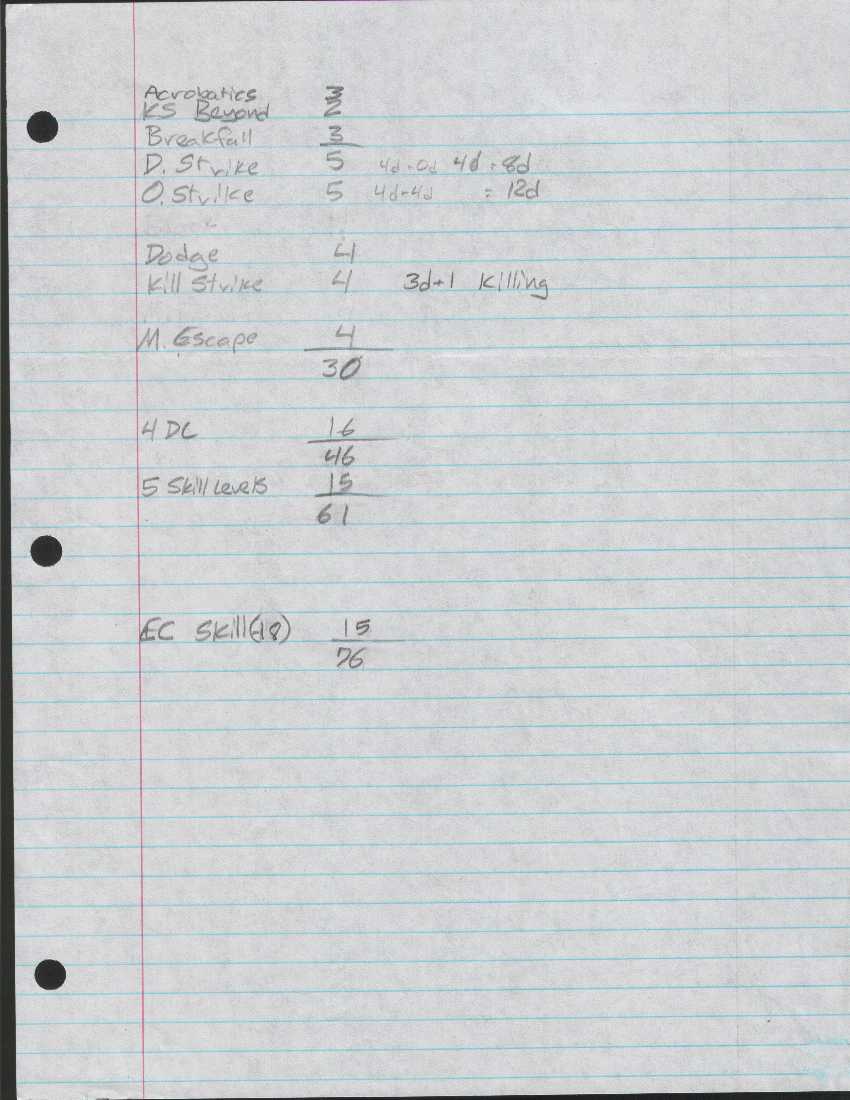 Acrobatics 3
KS Beyond 2
Breakfall 3
D. Strike 5 4d+0d 4d = 8d
O. Strike 5 4d+4d = 12d
Dodge 4
Kill Strike 4 3d+1 Killing
M. Escape 4
30
4 DC 16
46
5 Skill Levels 15
61
EC Skill(-18) 15
76